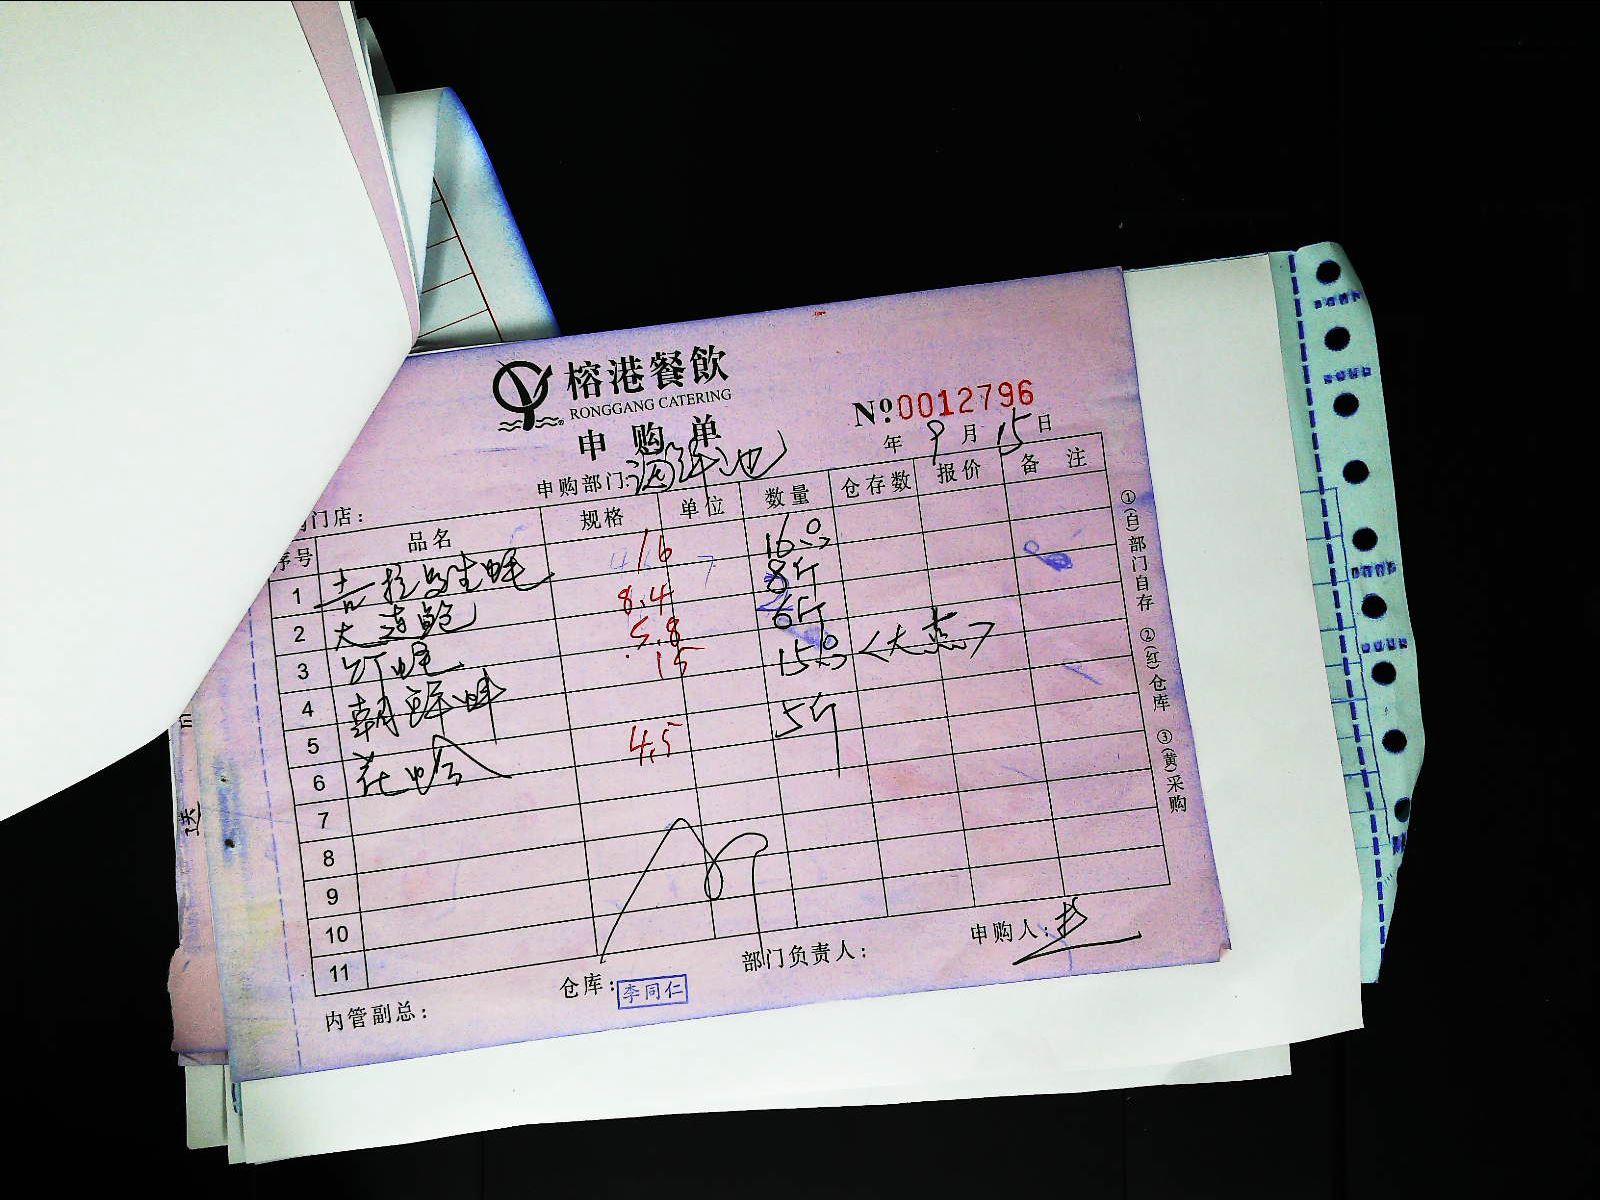 榕港餐飲
RONGGANG CATERING
申购单
№0012796
年9月15日
申购部门:海鲜池
门店:
序号 品名 规格 单位 数量 仓存数 报价 备注
1 吉拉多生蚝 16 16只
2 大连鲍 8.4 8斤
3 5.8 6斤
4 15 15只 <大点>
5
6 花蛤 4.5 5斤
7
8
9
10
11
①(白)部门自存 ②(红)仓库 ③(黄)采购
内管副总: 仓库:李同仁 部门负责人: 申购人: